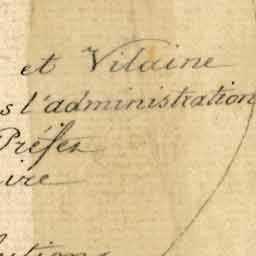 et Vilaine
s l'administration
Préfet
ire